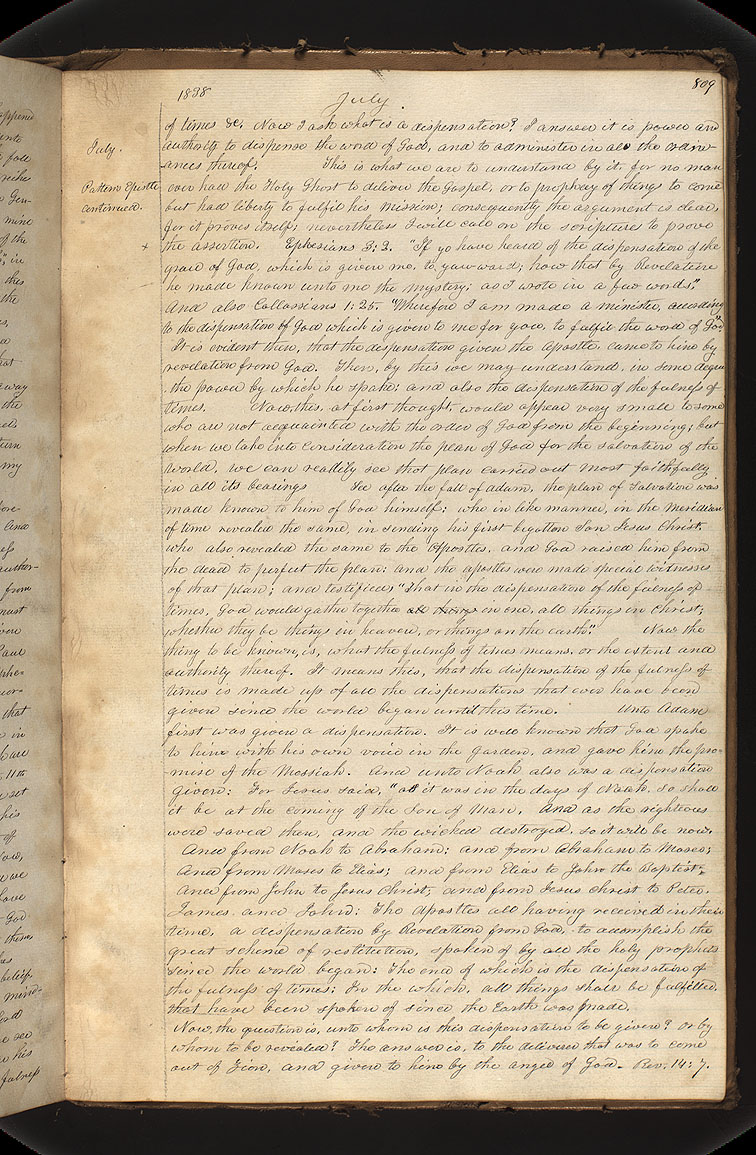 1838
July.
809
July.
Pattens Epistle
continued.
of times &c. Now I ask what is a dispensation? I answer it is power and
authority to dispense the word of God, and to administer in all the ordin-
ances thereof. This is what we are to understand by it, for no man
ever had the Holy Ghost to deliver the Gospel, or to prophecy of things to come
but had liberty to fulfil his mission; consequently the argument is clear,
for it proves itself; nevertheless I will call on the scriptures to prove
the assertion. Ephesians 3:2. "If ye have heard of the dispensation of the
grace of God, which is given me, to you-ward; how that by Revelation
he made known unto me the mystery; as I wrote in a few words."
And also Collossians 1:25. "Wherefore I am made a minister, according
to the dispensation of God which is given to me for you, to fulfil the word of God"
It is evident then, that the dispensation given the Apostle, came to him by
revelation from God. Then, by this we may understand, in some degree
the power by which he spake; and also the dispensation of the fulness of
times. Now this, at first thought, would appear very small to some
who are not acquainted with the order of God from the beginning; but
when we take into consideration the plan of God for the salvation of the
World, we can readily see that plan carried out most faithfully
in all its bearings See after the fall of Adam, the plan of Salvation was
made known to him of God himself; who in like manner, in the meridian
of time revealed the same, in sending his first begotten Son Jesus Christ,
who also revealed the same to the Apostles, and God raised him from
the dead to perfect the plan; and the apostles were made special witnesses
of that plan; and testifies "that in the dispensation of the fulness of
times, God would gather together all things in one, all things in Christ;
whether they be things in heaven, or things on the earth." Now the
thing to be known, is, what the fulness of times means, or the extent and
authority thereof. It means this, that the dispensation of the fulness of
times is made up of all the dispensations that ever have been
given since the world began until this time. Unto Adam
first was given a dispensation. It is well known that God spake
to him with his own voice in the garden, and gave him the pro-
mise of the Messiah. And unto Noah also was a dispensation
given; For Jesus said, "as it was in the days of Noah, so shall
it be at the coming of the Son of Man. And as the righteous
were saved then, and the wicked destroyed, so it will be now.
And from Noah to Abraham; and from Abraham to Moses;
And from Moses to Elias; and from Elias to John the Baptist;
And from John to Jesus Christ; and from Jesus Christ to Peter,
James and John: The Apostles all having received in their
time, a dispensation by Revelation from God, to accomplish the
great scheme of restitution, spoken of by all the holy prophets
since the world began; The end of which is the dispensation of
the fulness of times; In the which, all things shall be fulfilled
that have been spoken of since the Earth was made.
Now, the question is, unto whom is this dispensation to be given? or by
whom to be revealed? The answer is, to the deliverer that was to come
out of Zion, and given to him by the angel of God. Rev. 14:7.